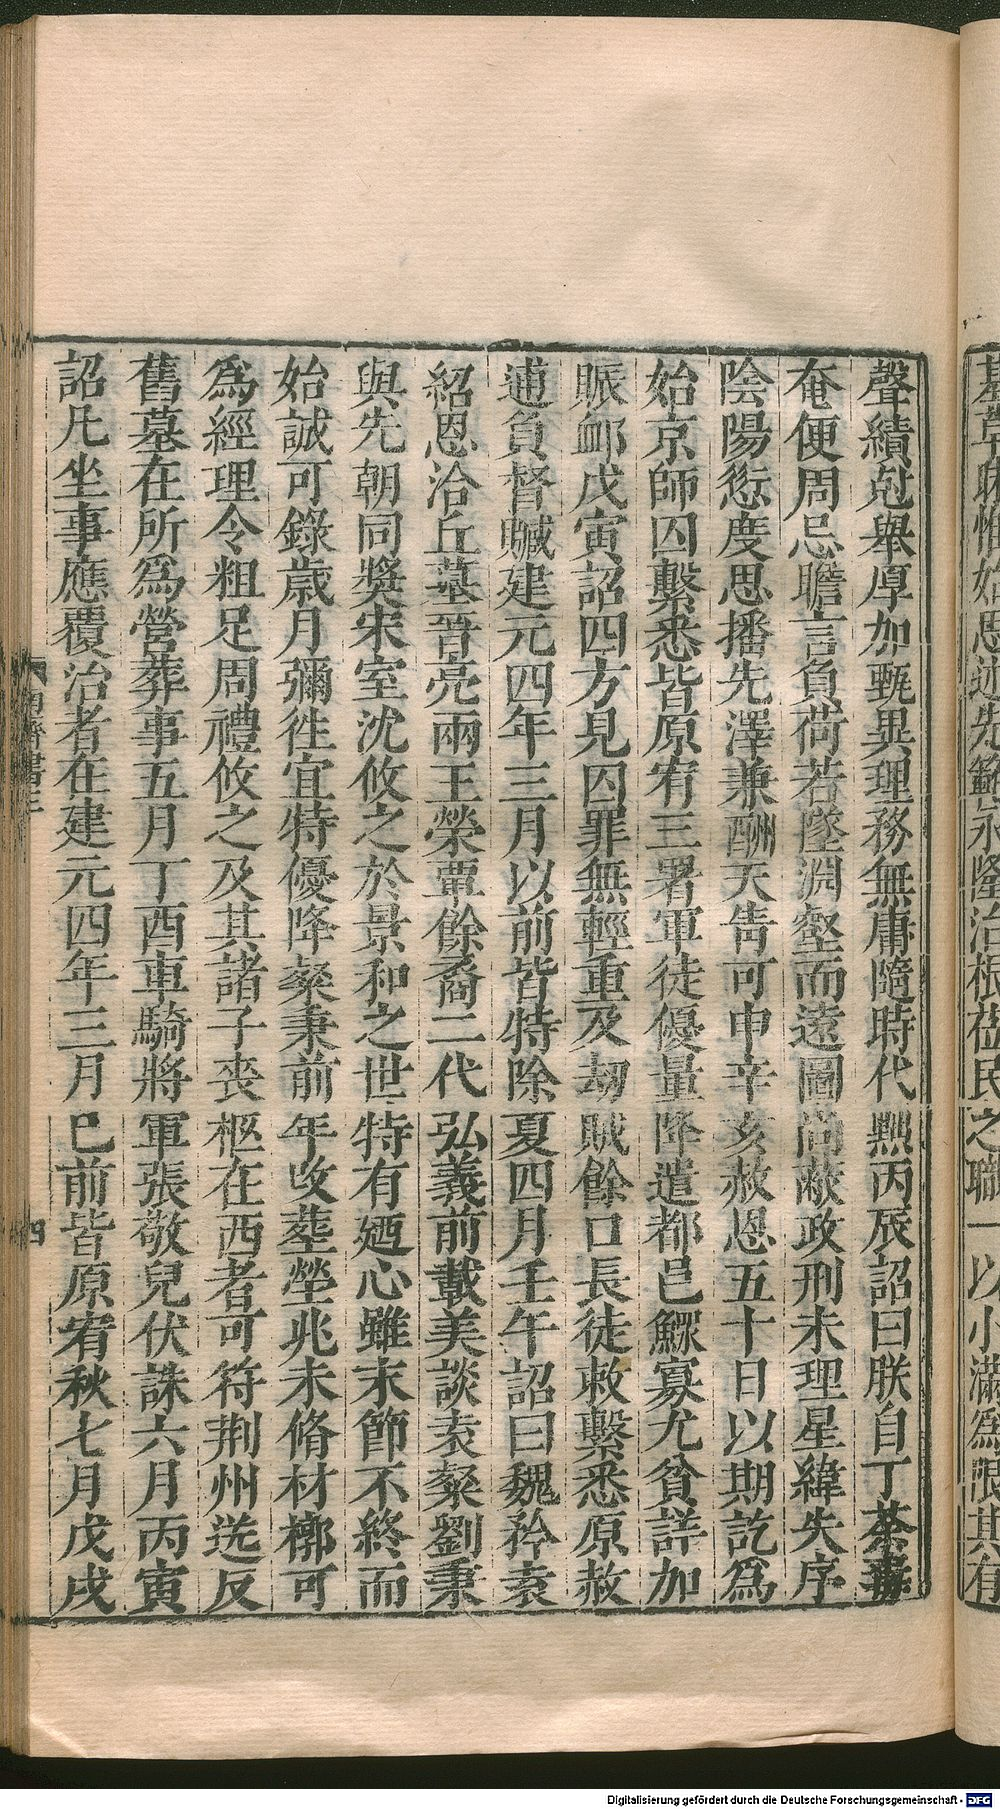 基草昧惟始思述先範永隆治根莅民之職一以小滿爲限其有
聲績尅舉厚加甄異理務無庸隨時代黜丙辰詔曰朕自丁荼毒
奄便周忌瞻言負荷若墜淵壑而遠圖尚蔽政刑未理星緯失序
陰陽愆度思播先澤兼酬天眚可申辛亥赦恩五十日以期訖爲
始京師囚繫悉皆原宥三署軍徒優量降遣都邑鰥寡尤貧詳加
賑䘏戊寅詔四方見囚罪無輕重及劫賊餘口長徒敕繫悉原赦
逋負督贓建元四年三月以前皆特除夏四月壬午詔曰魏矜袁
紹恩洽丘墓晉亮兩王榮覃餘裔二代弘義前載美談袁粲劉秉
與先朝同奬宋室沈攸之於景和之世特有廼心雖末節不終而
始誠可錄歲月彌徃宜特優降粲秉前年改塟塋兆未脩材槨可
爲經理令粗足周禮攸之及其諸子喪柩在西者可符荆州送反
舊墓在所爲營葬事五月丁酉車騎將軍張敬兒伏誅六月丙寅
詔凡坐事應覆治者在建元四年三月巳前皆原宥秋七月戊戌
南齊書三
四
Digitalisierung gefördert durch die Deutsche Forschungsgemeinschaft - DFG